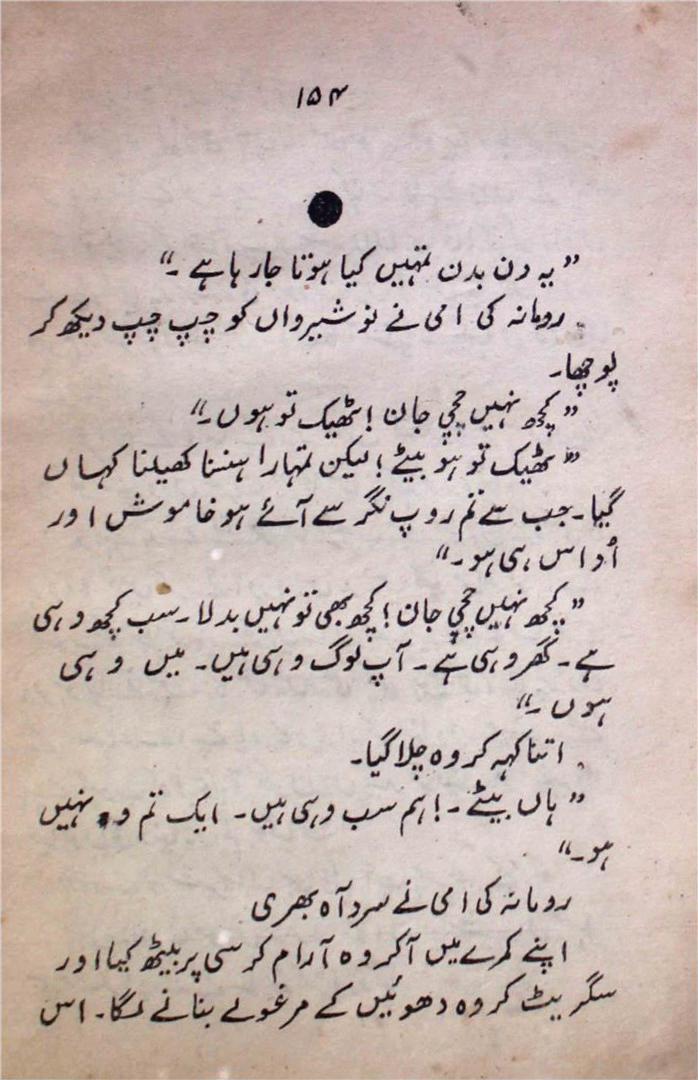 ۱۵۴
”یہ دن بدن تمہیں کیا ہوتا جا رہا ہے۔“
رومانہ کی امی نے نوشیرواں کو چپ چپ دیکھ کر
پوچھا۔
”کچھ نہیں چچی جان! ٹھیک تو ہوں۔“
”ٹھیک تو ہو بیٹے! لیکن تمہارا ہنسنا کھیلنا کہاں
گیا۔ جب سے تم روپ نگر سے آئے ہو خاموش اور
اُداس ہی ہو۔“
”کچھ نہیں چچی جان! کچھ بھی تو نہیں بدلا۔ سب کچھ وہی
ہے۔ گھر وہی ہے۔ آپ لوگ وہی ہیں۔ میں وہی
ہوں۔“
اتنا کہہ کر وہ چلا گیا۔
”ہاں بیٹے۔! ہم سب وہی ہیں۔ ایک تم وہ نہیں
ہو۔“
رومانہ کی امی نے سرد آہ بھری
اپنے کمرے میں آ کر وہ آرام کرسی پر بیٹھ گیا اور
سگریٹ کر وہ دھوئیں کے مرغولے بنانے لگا۔ اس